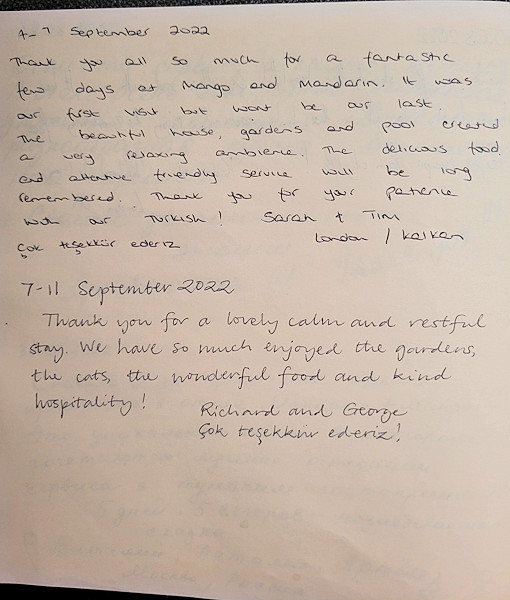 4-7 September 2022
Thank you all so much for a fantastic
few days at Mango and Mandarin. It was
our first visit but wont be our last.
The beautiful house, gardens and pool created
a very relaxing ambience. The delicious food
and attentive friendly service will be long
remembered. Thank you for your patience
with our Turkish! Sarah + Tim
Çok teşekkür ederiz London / Kalkan
7-11 September 2022
Thank you for a lovely calm and restful
stay. We have so much enjoyed the gardens,
the cats, the wonderful food and kind
hospitality!
Richard and George
Çok teşekkür ederiz!